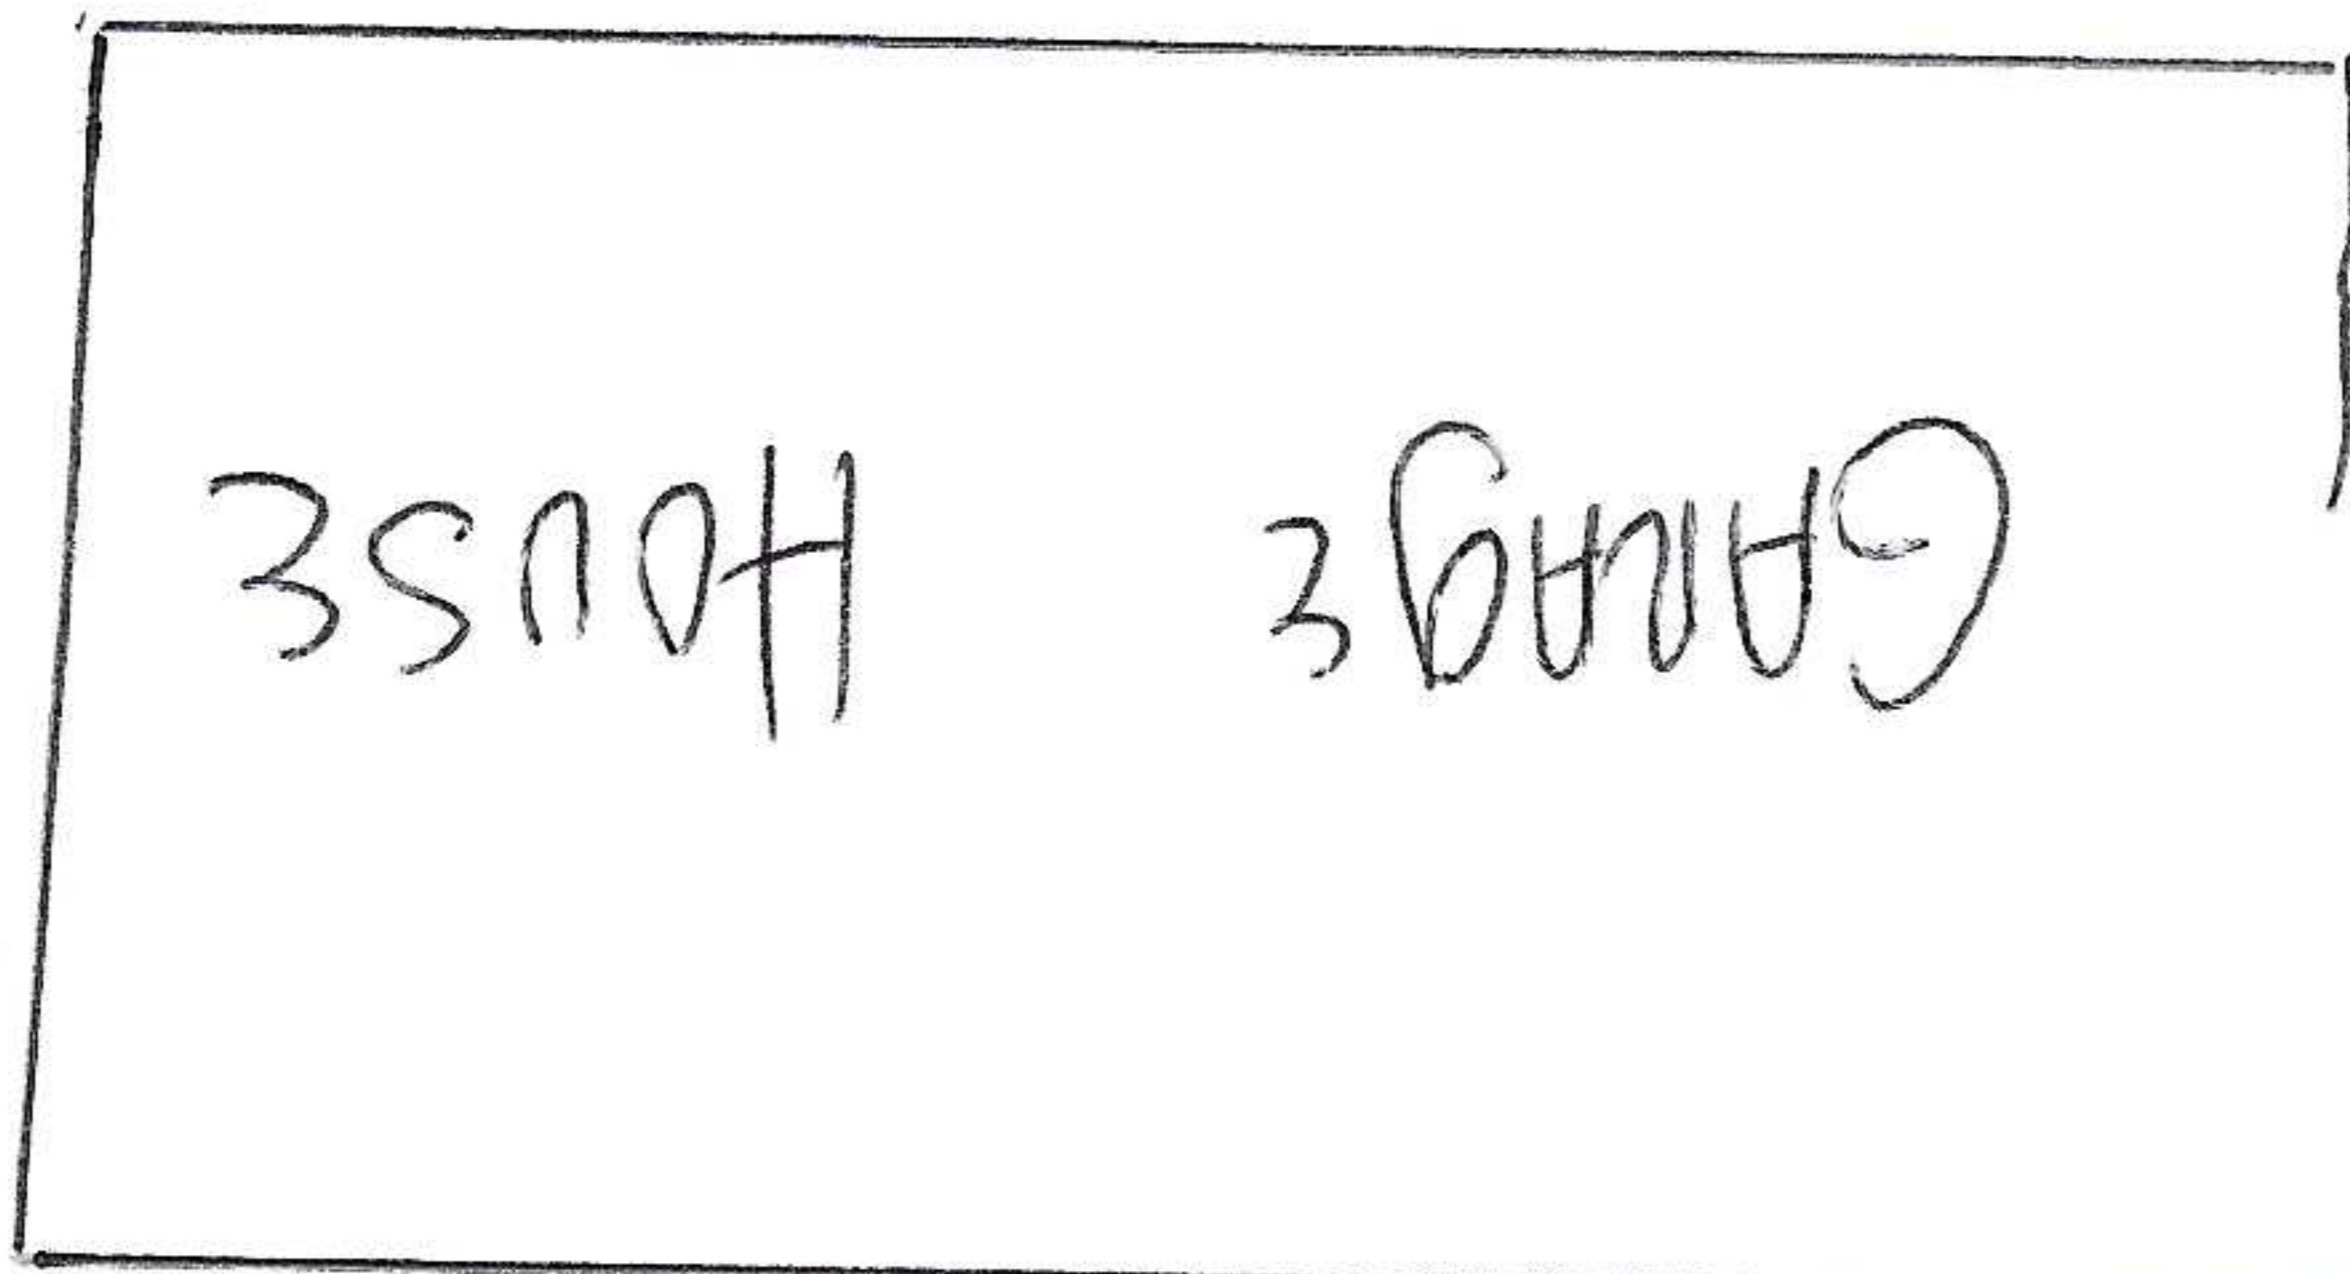 GArAgE HOUSE